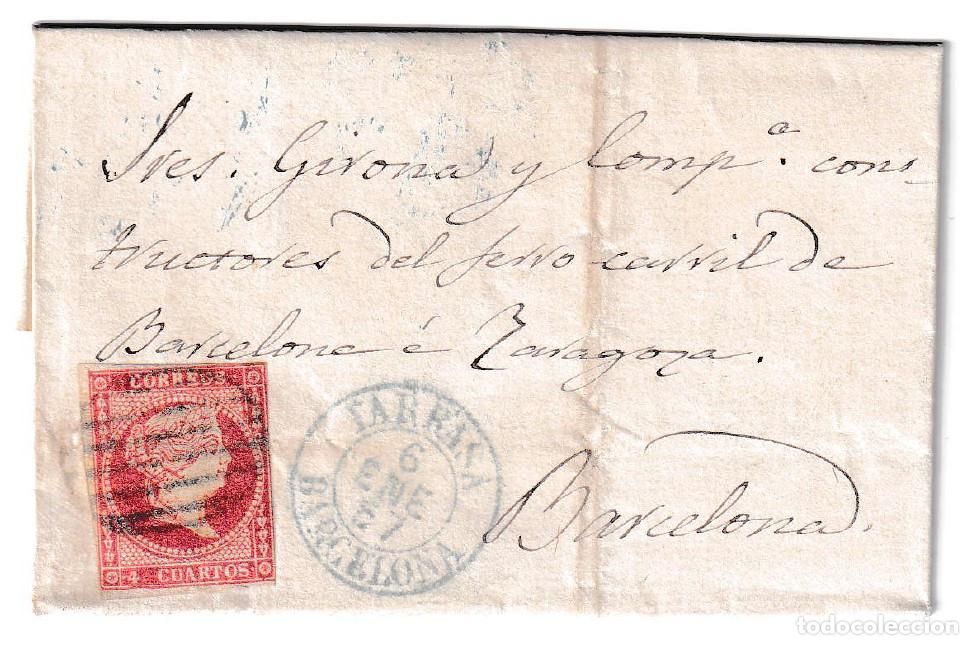 Sres. Girona y Comp.ª cons-
tructores del ferro-carril de
Barcelona á Zaragoza.
CORREOS
4 CUARTOS
TARRASA
6
ENE
57
BARCELONA
Barcelona.
todocoleccion